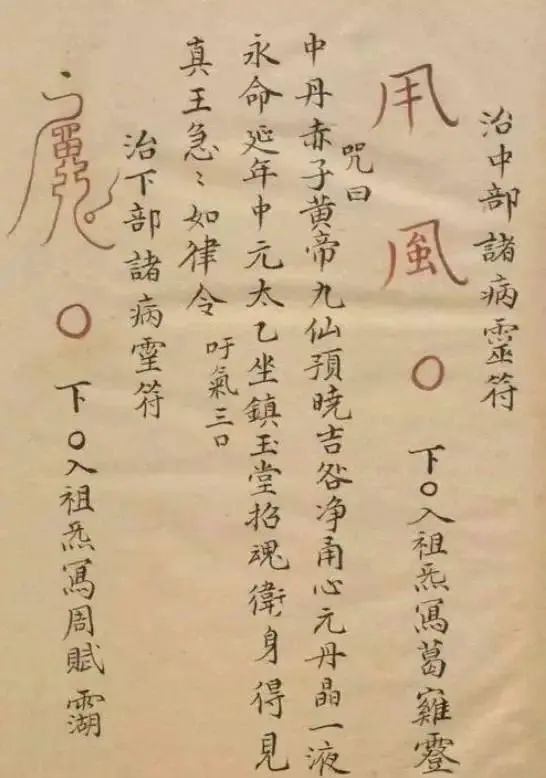 治中部諸病靈符
風
〇 下〇入祖炁冩葛雞
咒曰
中丹赤子黄帝九仙預曉吉咎净甬心元丹晶一液
永命延年中元太乙坐鎮玉堂招魂衛身得見
真王急〻如律令 吁氣三口
治下部諸病靈符
〇 下〇入祖炁冩周賦